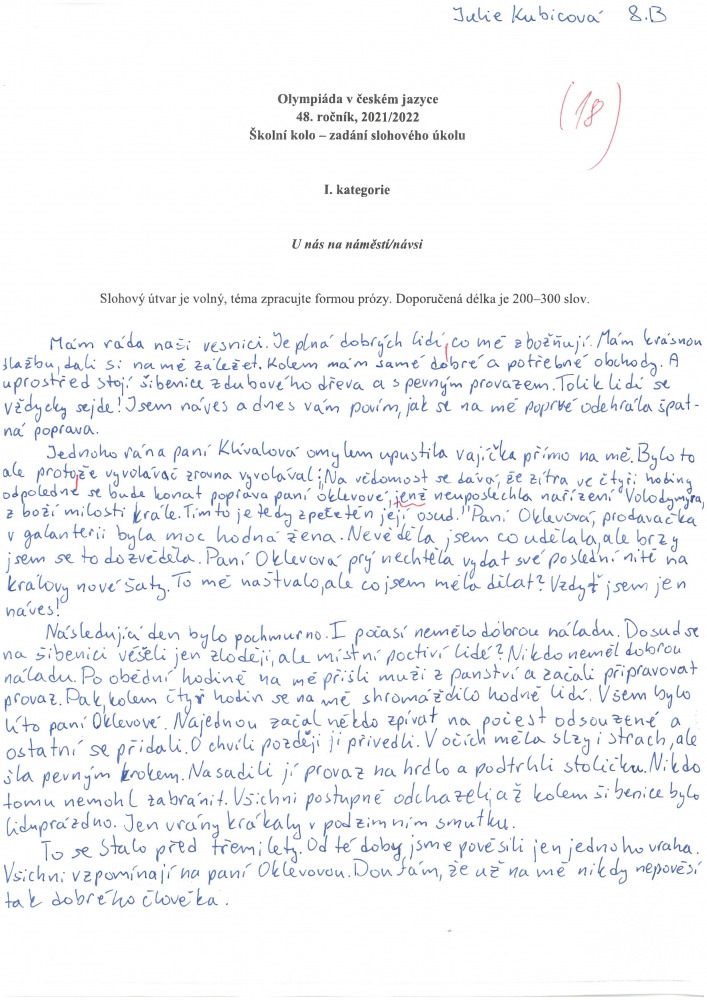 Julie Kubicová 8.B
Olympiáda v českém jazyce
48. ročník, 2021/2022
Školní kolo – zadání slohového úkolu
(18)
I. kategorie
U nás na náměstí/návsi
Slohový útvar je volný, téma zpracujte formou prózy. Doporučená délka je 200–300 slov.
Mám ráda naši vesnici. Je plná dobrých lidí, co mě zbožňují. Mám krásnou
dlažbu, dali si na mě záležet. Kolem mám samé dobré a potřebné obchody. A
uprostřed stojí šibenice z dubového dřeva a s pevným provazem. Tolik lidí se
vždycky sejde! Jsem náves a dnes vám povím, jak se na mě poprvé odehrála špat-
ná poprava.
Jednoho rána paní Klívalová omylem upustila vajíčka přímo na mě. Bylo to
ale protože vyvolávač zrovna vyvolával: „Na vědomost se dává, že zítra ve čtyři hodiny
odpoledne se bude konat poprava paní Oklevové, jenž neuposlechla nařízení Volodymýra,
z boží milosti krále. Tímto je tedy zpečetěn její osud." Paní Oklevová, prodavačka
v galanterii byla moc hodná žena. Nevěděla jsem co udělala, ale brzy
jsem se to dozvěděla. Paní Oklevová prý nechtěla vydat své poslední nitě na
královy nové šaty. To mě naštvalo, ale co jsem měla dělat? Vždyť jsem jen
náves!
Následující den bylo pochmurno. I počasí nemělo dobrou náladu. Dosud se
na šibenici věšeli jen zloději, ale místní poctiví lidé? Nikdo neměl dobrou
náladu. Po obědní hodině na mě přišli muži z panství a začali připravovat
provaz. Pak, kolem čtyř hodin se na mě shromáždilo hodně lidí. Všem bylo
líto paní Oklevové. Najednou začal někdo zpívat na počest odsouzené a
ostatní se přidali. O chvíli později ji přivedli. V očích měla slzy i strach, ale
šla pevným krokem. Nasadili jí provaz na hrdlo a podtrhli stoličku. Nikdo
tomu nemohl zabránit. Všichni postupně odcházeli, až kolem šibenice bylo
liduprázdno. Jen vrány krákaly v podzimním smutku.
To se stalo před třemi lety. Od té doby jsme pověsili jen jednoho vraha.
Všichni vzpomínají na paní Oklevovou. Doufám, že už na mě nikdy nepověsí
tak dobrého člověka.